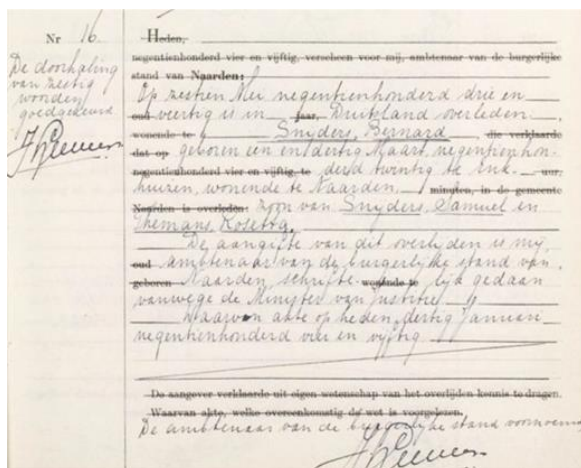 Nr 16.
De doorhaling
van zestig
woorden
goedgekeurd
Heden,
negentienhonderd vier en vijftig, verscheen voor mij, ambtenaar van de burgerlijke
stand van Naarden:
Op zestien Mei negentienhonderd drie en
oud veertig is in jaar, Duitsland overleden
wonende te Snijders, Bernard, die verklaarde
dat op geboren een en dertig Maart negentienhon-
negentienhonderd vier en vijftig, te derd twintig te Enk- uur,
huizen, wonende te Naarden, minuten, in de gemeente
Naarden is overleden: zoon van Snijders, Samuel en
Themans, Rosetta.
De aangifte van dit overlijden is mij,
oud ambtenaar van de burgerlijke stand van
geboren Naarden, schrifte- wonende te lijk gedaan
vanwege de Minister van Justitie
Waarvan akte op heden, dertig Januari
negentienhonderd vier en vijftig
De aangever verklaarde uit eigen wetenschap van het overlijden kennis te dragen.
Waarvan akte, welke overeenkomstig de wet is voorgelezen.
De ambtenaar van de burgerlijke stand voornoemd